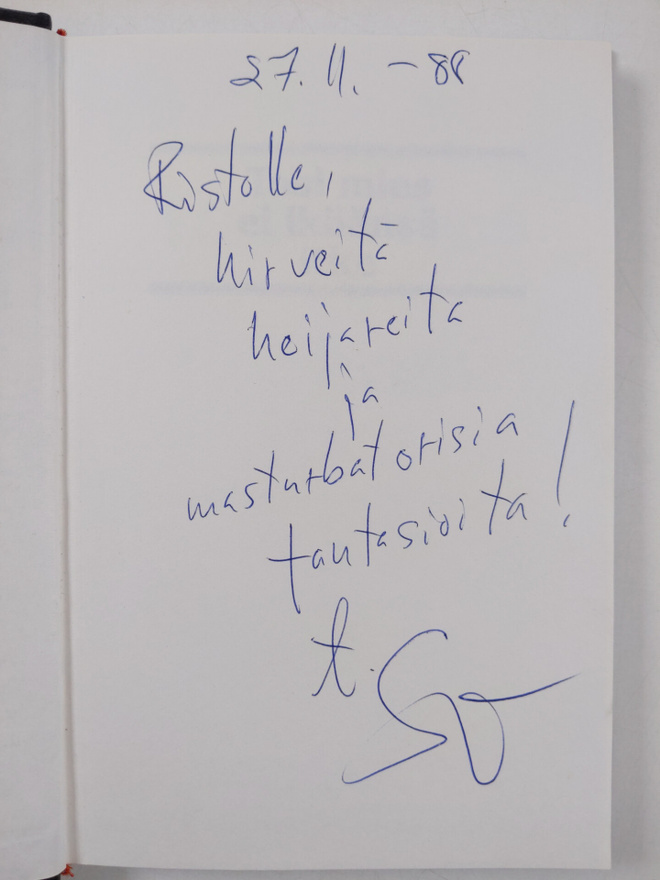 27.11. -88
Ristolle,
hirveitä
heijareita
ja
masturbatorisia
fantasioita!
t.